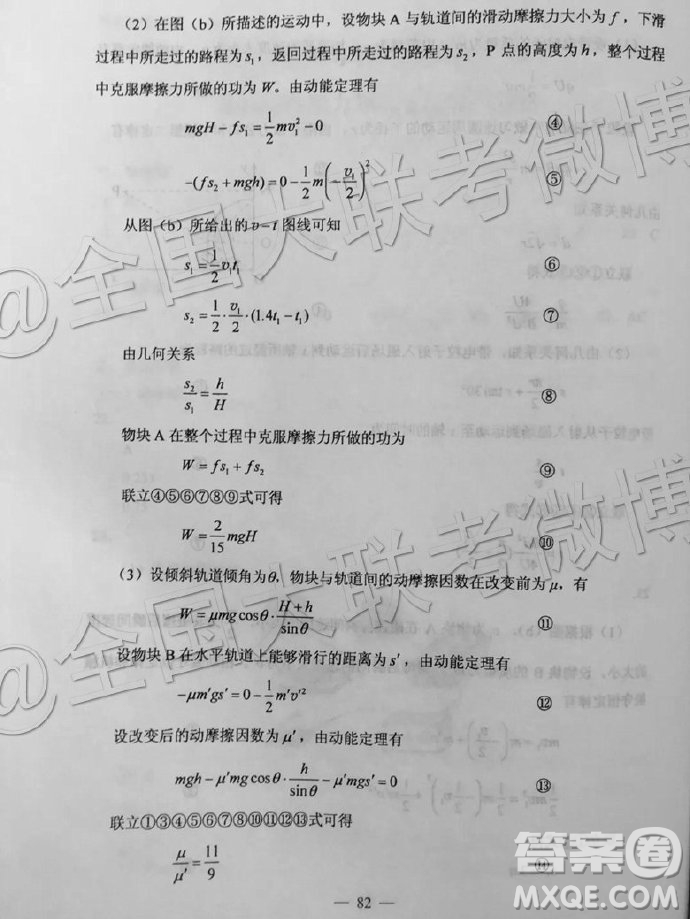 （2）在图（b）所描述的运动中，设物块 A 与轨道间的滑动摩擦力大小为 f，下滑
过程中所走过的路程为 s₁，返回过程中所走过的路程为 s₂，P 点的高度为 h，整个过
程中克服摩擦力所做的功为 W。由动能定理有
mgH − fs₁ = 1/2 mv₁² − 0 ④
−(fs₂ + mgh) = 0 − 1/2 m(−v₁/2)² ⑤
从图（b）所给出的 v－t 图线可知
s₁ = 1/2 v₁t₁ ⑥
s₂ = 1/2 · v₁/2 · (1.4t₁ − t₁) ⑦
由几何关系
s₂/s₁ = h/H ⑧
物块 A 在整个过程中克服摩擦力所做的功为
W = fs₁ + fs₂ ⑨
联立④⑤⑥⑦⑧⑨式可得
W = 2/15 mgH ⑩
（3）设倾斜轨道倾角为θ，物块与轨道间的动摩擦因数在改变前为 μ，有
W = μmg cosθ · (H + h)/sinθ ⑪
设物块 B 在水平轨道上能够滑行的距离为 s′，由动能定理有
−μm′gs′ = 0 − 1/2 m′v′² ⑫
设改变后的动摩擦因数为 μ′，由动能定理有
mgh − μ′mg cosθ · h/sinθ − μ′mgs′ = 0 ⑬
联立①③④⑤⑥⑦⑧⑨⑩⑪⑫⑬式可得
μ/μ′ = 11/9 ⑭
— 82 —
@全国大联考微博
@全国大联考微博
答案圈
MXQE.COM